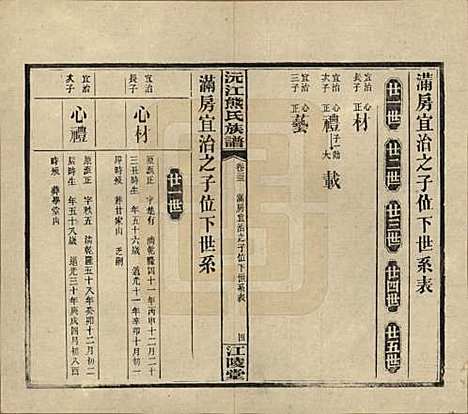 滿房宜治之子位下世系表
廿一世
廿二世
廿三世
廿四世
廿五世
材
正
禮 載
正
藝
正
三子
沅江熊氏族譜
卷三
滿房宜治之子位下世系表
四
江陵堂
滿房宜治之子位下世系
廿一世
宜治長子
心材
原派正 字楚有 清乾隆四十一年丙申十二月二十
三丑時生 年五十六歲 道光十一年辛卯十月初五
辰時歿 葬廿家山
宜治次子
心禮
原派正 字秩五 清乾隆五十八年癸卯十二月初二
辰時生 年五十八歲 道光三十年庚戌四月
時歿 葬學堂內